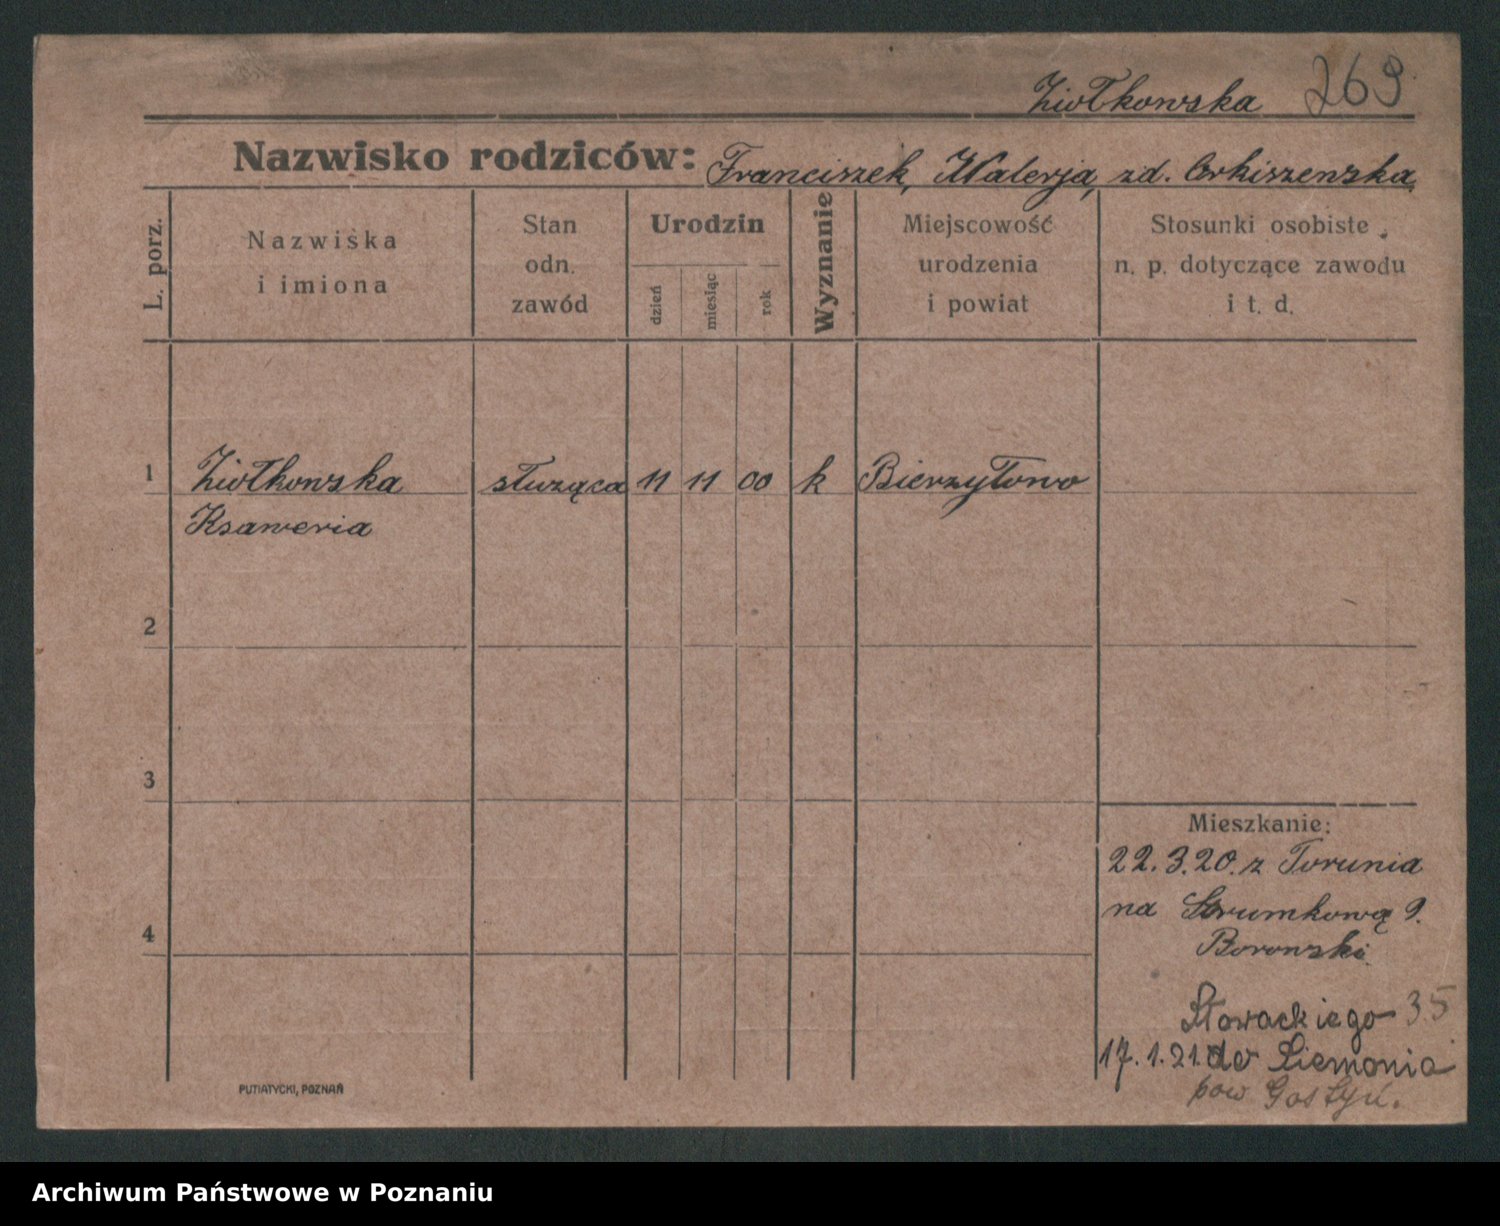 Ziołkowska 269
Nazwisko rodziców: Franciszek, Walerja, zd. Orkiszewska
L. porz.
Nazwiska
i imiona
Stan
odn.
zawód
Urodzin
dzień
miesiąc
rok
Wyznanie
Miejscowość
urodzenia
i powiat
Stosunki osobiste
n. p. dotyczące zawodu
i t. d.
1 Ziołkowska służąca 11 11 00 k Bierzyłowo
Ksaweria
2
3
Mieszkanie:
22.3.20. z Torunia
na Strumkową 9.
4
Borowski
Słowackiego 35
17.1.21. do Siemonia
pow Gostyń.
PUTIATYCKI, POZNAŃ
Archiwum Państwowe w Poznaniu